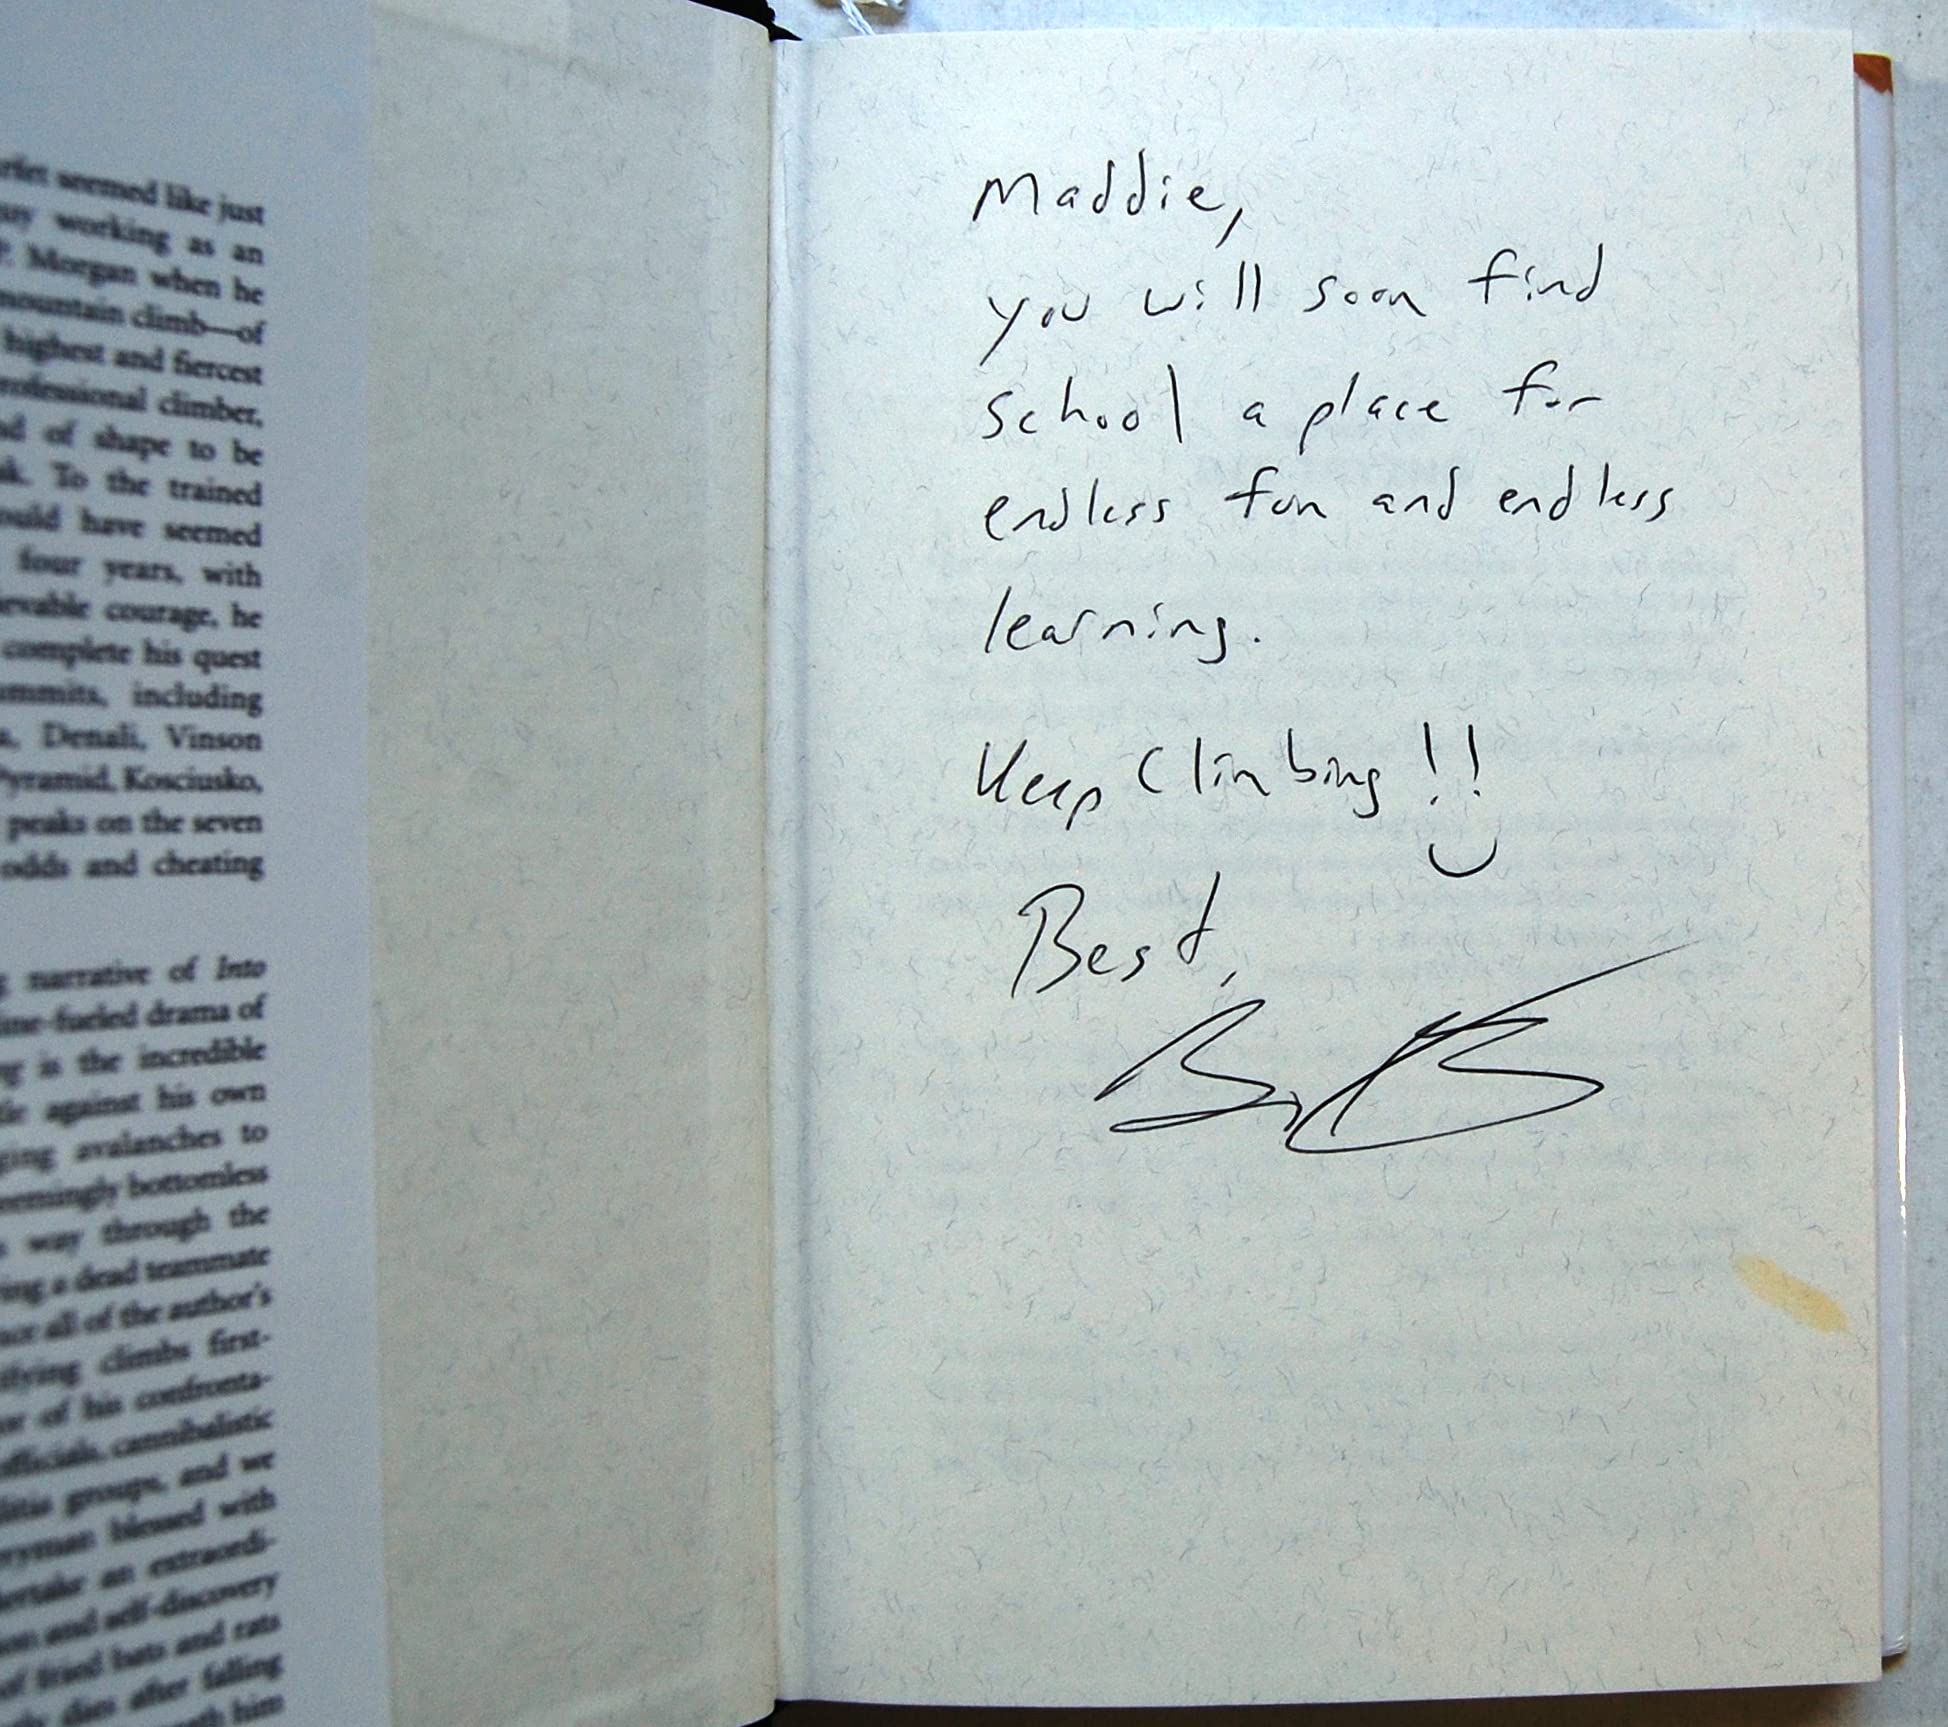 seemed like just
working as an
P. Morgan when he
mountain climb—of
highest and fiercest
professional climber,
of shape to be
To the trained
would have seemed
four years, with
courage, he
complete his quest
summits, including
Denali, Vinson
Pyramid, Kosciusko,
peaks on the seven
odds and cheating
narrative of Into
drama of
is the incredible
against his own
avalanches to
seemingly bottomless
way through the
a dead teammate
all of the author's
climbs first-
of his confronta-
officials, cannibalistic
groups, and we
blessed with
an extraordi-
and self-discovery
of fried bats and rats
dies after falling
him
Maddie,
you will soon find
school a place for
endless fun and endless
learning.
Keep Climbing!!
Best,